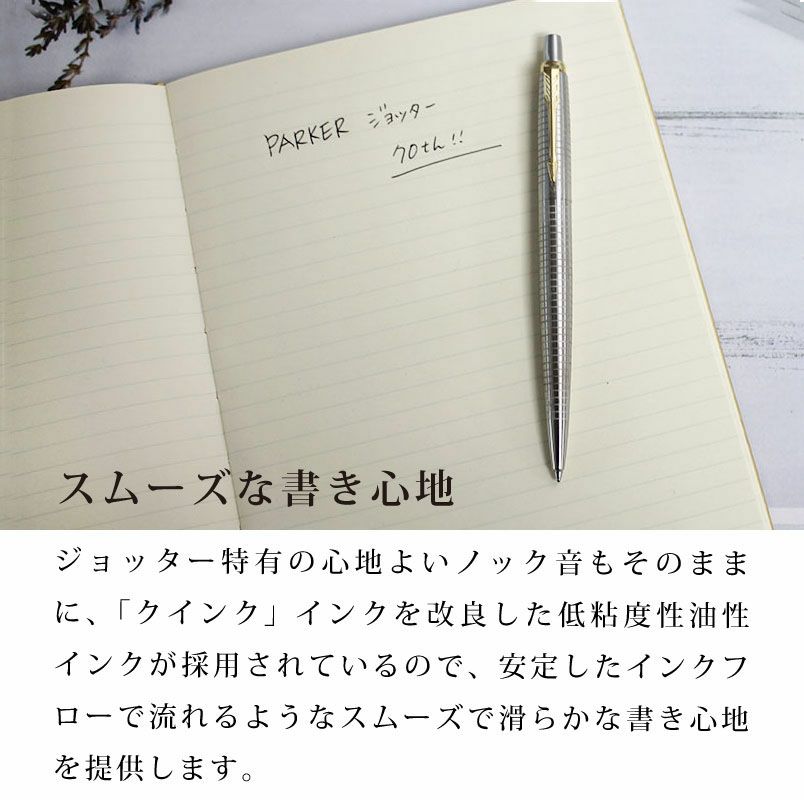 PARKER ジョッター
70th!!
スムーズな書き心地
ジョッター特有の心地よいノック音もそのまま
に、「クインク」インクを改良した低粘度性油性
インクが採用されているので、安定したインクフ
ローで流れるようなスムーズで滑らかな書き心地
を提供します。